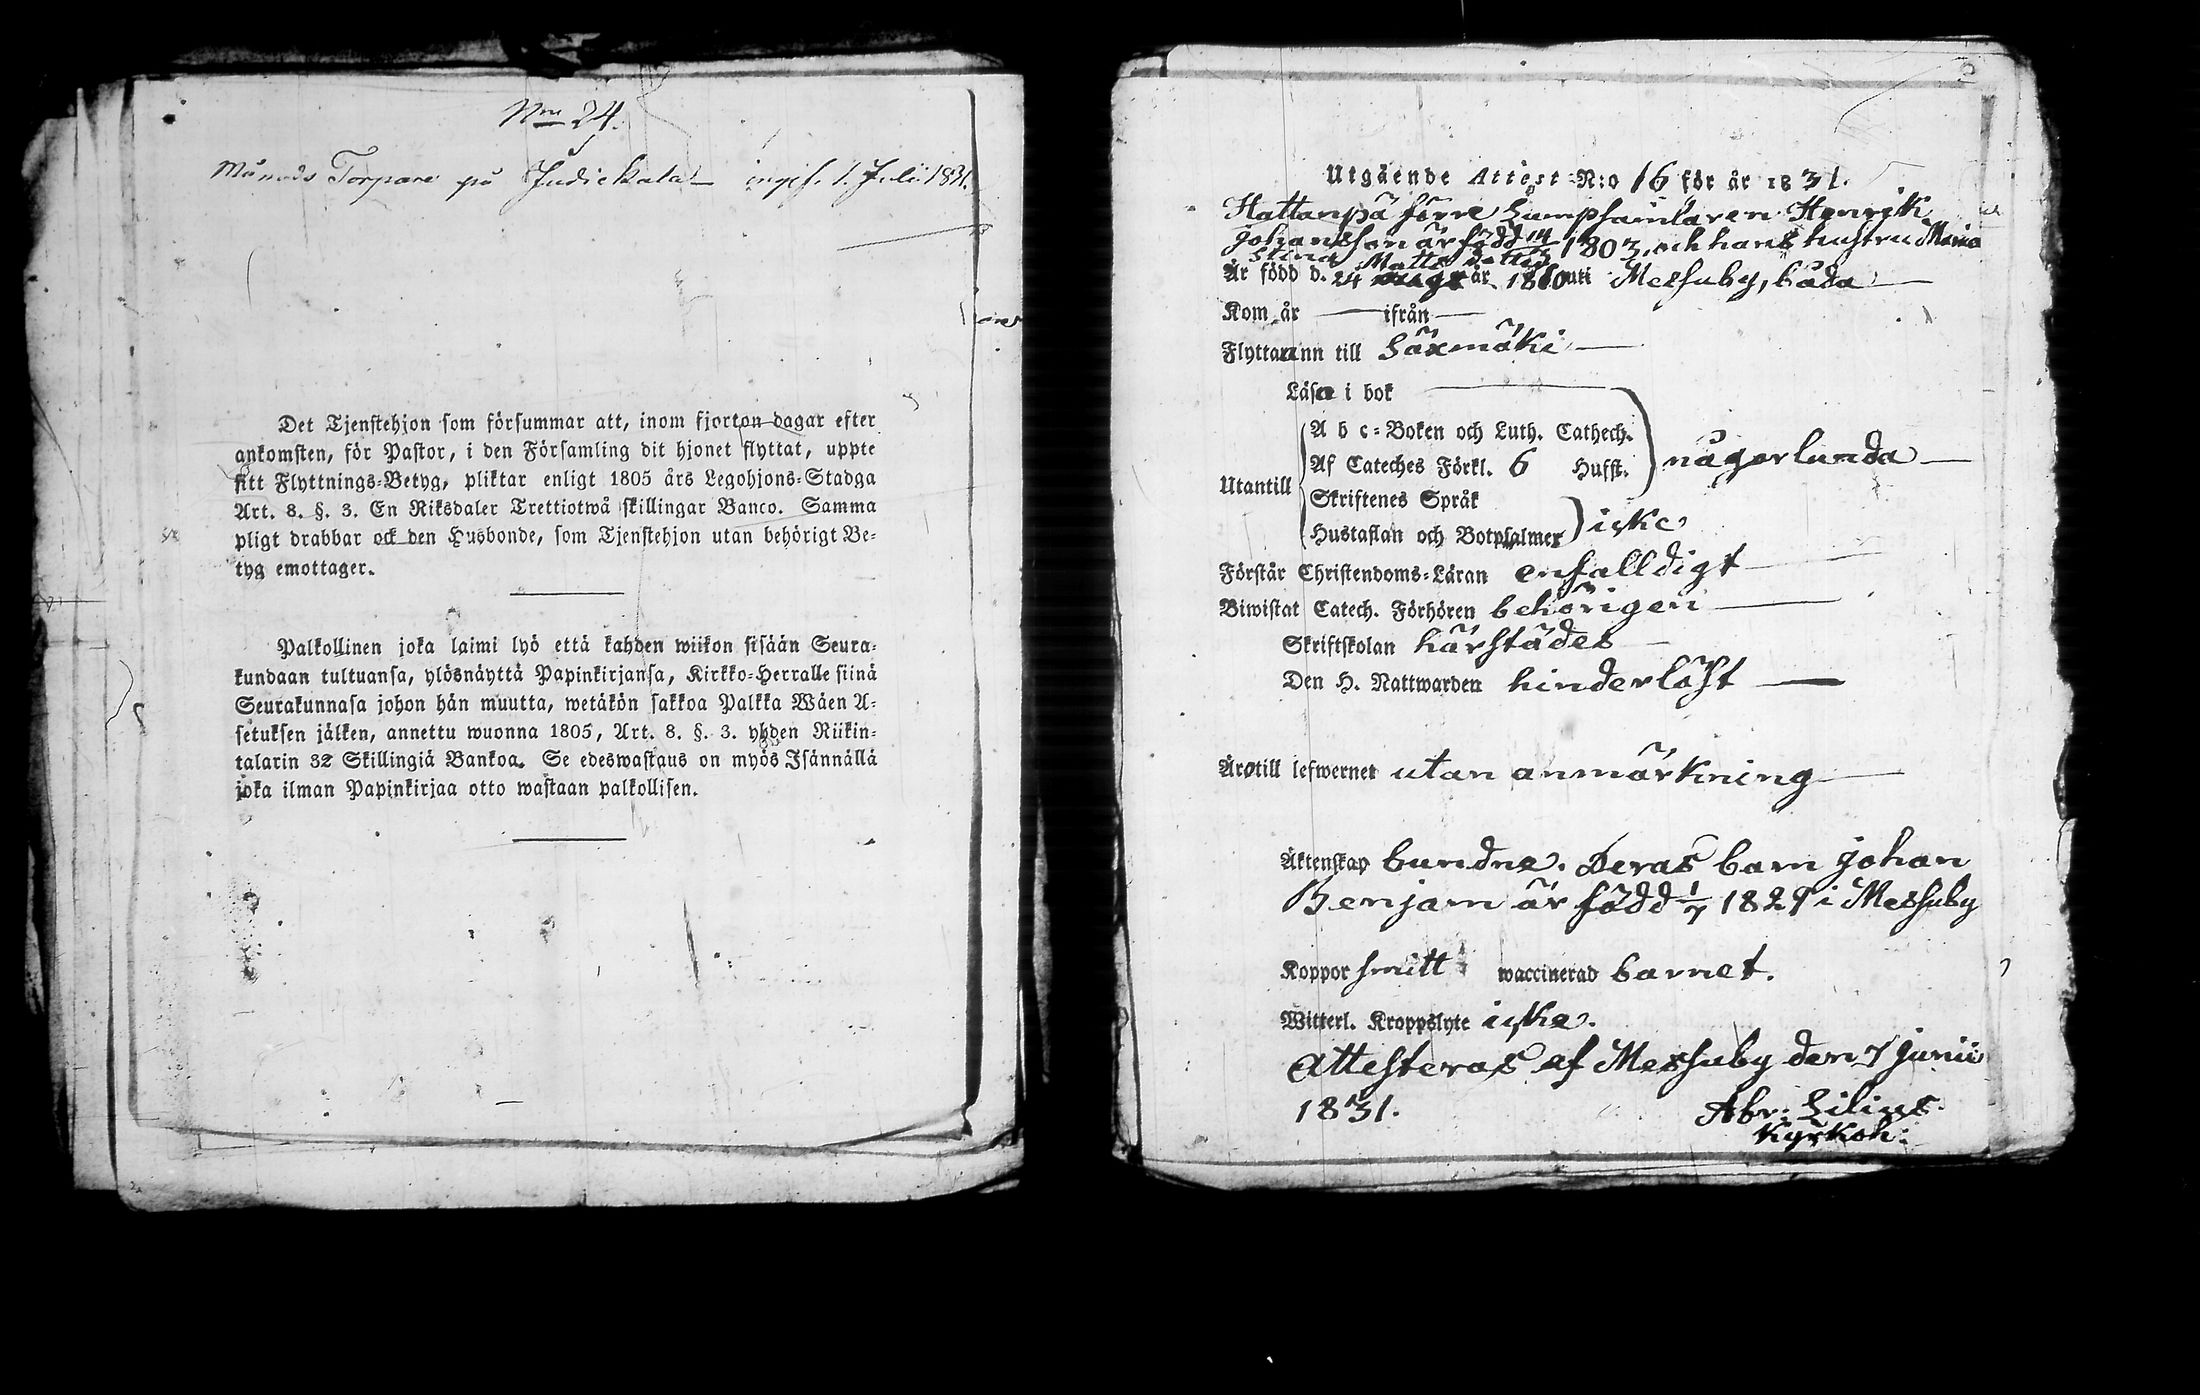 Nro 24.
Månads Torpare på Judickala ingif. 1. Juli 1831.
Det Tjenstehjon som försummar att, inom fjorton dagar efter
ankomsten, för Pastor, i den Församling dit hjonet flyttat, uppte
sitt Flyttnings-Betyg, pliktar enligt 1805 års Legohjons-Stadga
Art. 8. §. 3. En Riksdaler Trettiotwå skillingar Banco. Samma
pligt drabbar ock den Husbonde, som Tjenstehjon utan behörigt Be-
tyg emottager.
Palkollinen joka laimi lyö että kahden wiikon sisään Seura-
kundaan tultuansa, ylösnäyttä Papinkirjansa, Kirkko-Herralle siinä
Seurakunnasa johon hän muutta, wetäkön sakkoa Palkka Wäen A-
setuksen jälken, annettu wuonna 1805, Art. 8. §. 3. yhden Riikin-
talarin 32 Skillingiä Bankoa. Se edeswastaus on myös Isännällä
joka ilman Papinkirjaa otto wastaan palkollisen.
Utgående Attest N:o 16 för år 1831.
Hattanpä förre Lumpsamlaren Henrik
Johansson är född 14 1803, och hans hustru Maria
Stina Matts dotter
Är född d. 24 år 1800 uti Messuby, båda
Kom år — ifrån —
Flytta nn till Säxmäki
Läsa i bok
A b c-Boken och Luth. Cathech.
Af Cateches Förkl. 6 Hufst. någorlunda
Utantill
Skriftenes Språk
Hustaflan och Botpsalmer icke
Förstår Christendoms-Läran enfalldigt
Biwistat Catech. Förhören behörigen
Skriftskolan härstädes
Den H. Nattwarden hinderlöst
Äro till lefwernet utan anmärkning
Äktenskap bundne. Deras barn Johan
Benjam är född 1/7 1829 i Messuby
Koppor smitt waccinerad barnet.
Witterl. Kroppslyte icke.
Attesteras af Messuby den 7 Junii
1831.
Abr: Lilius.
Kyrkoh: